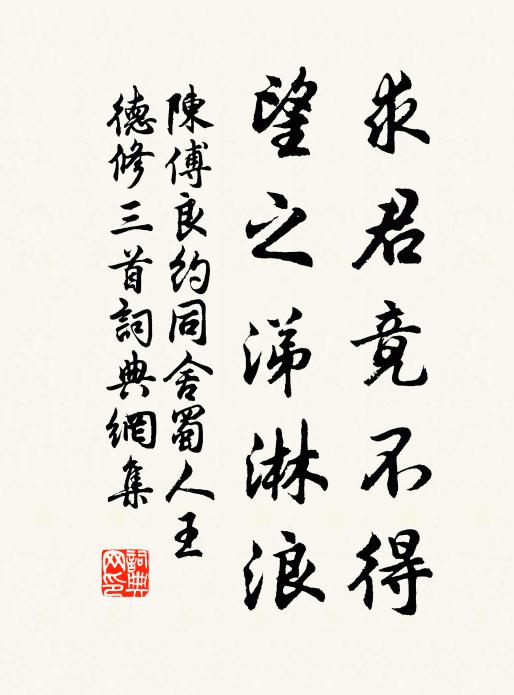 求君竟不得
望之涕淋浪
陳傅良約同舍蜀人王
德修三首詞典網集
詞典
网印